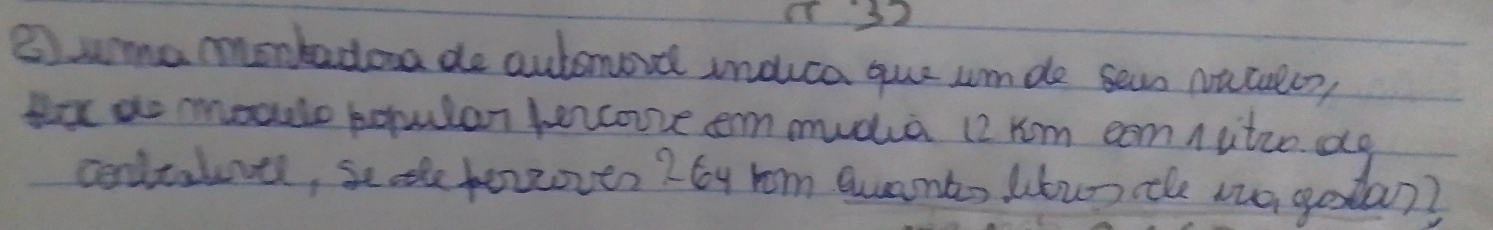 2) uma montadora de automovel indica que um de seus veiculos,
de modelo popular percorre em media 12 Km com 1 litro de
combustivel, se ele percorrer 264 km quantos litros ele ira gastar?